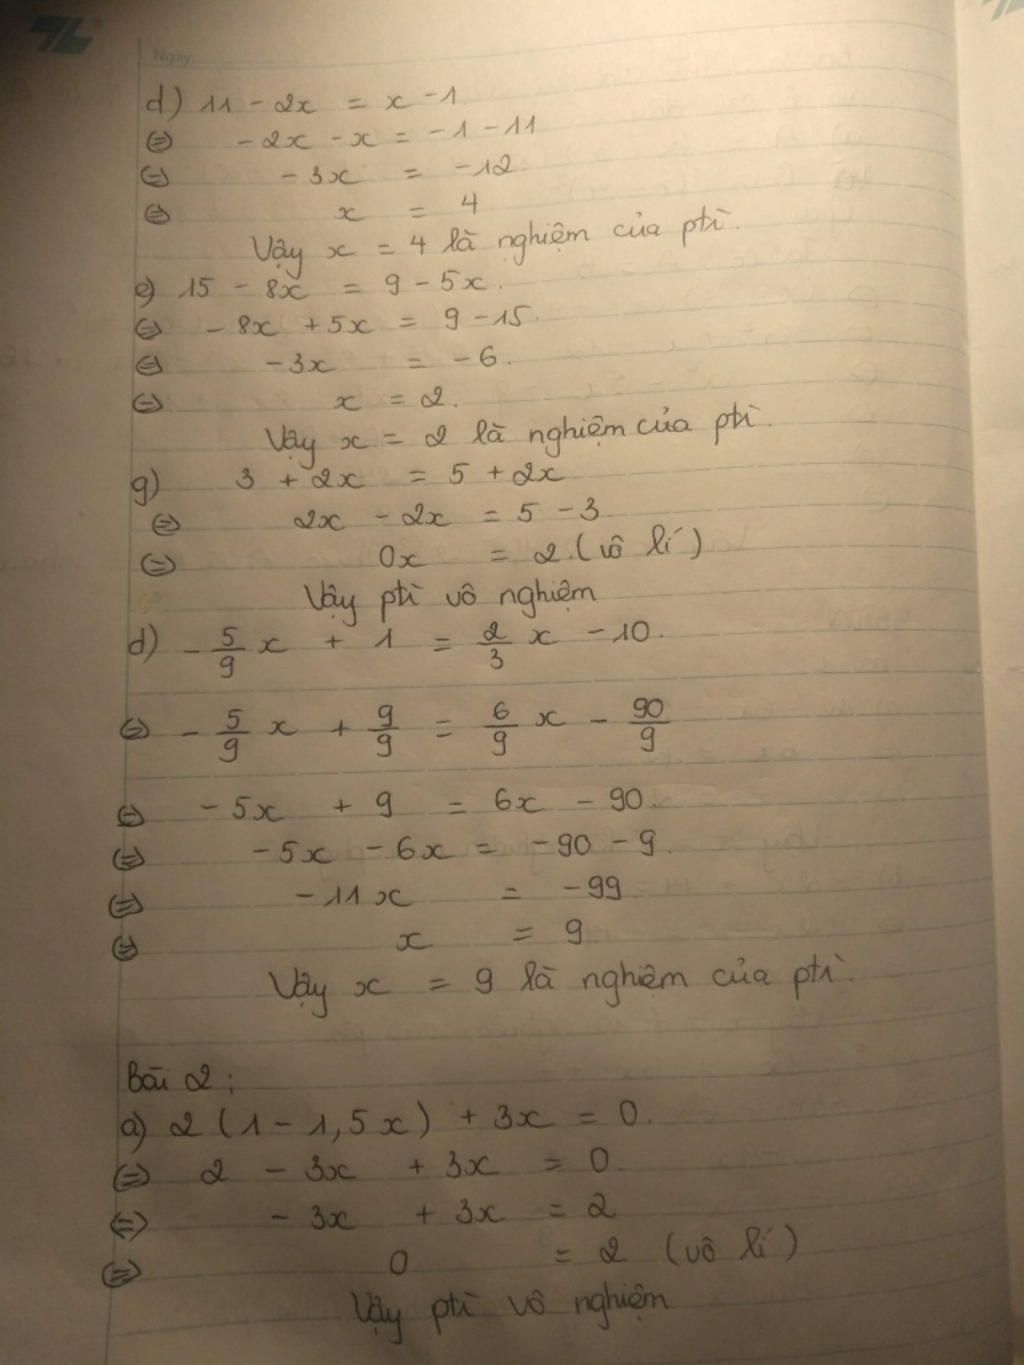 Ngày
d) 11 - 2x = x - 1
⇔ - 2x - x = - 1 - 11
⇔ - 3x = - 12.
⇔ x = 4
Vậy x = 4 là nghiệm của ptr̀.
e) 15 - 8x = 9 - 5x.
⇔ - 8x + 5x = 9 - 15.
⇔ - 3x = - 6.
⇔ x = 2.
Vậy x = 2 là nghiệm của ptr̀.
g) 3 + 2x = 5 + 2x
⇔ 2x - 2x = 5 - 3
⇔ 0x = 2. (vô lí)
Vậy ptr̀ vô nghiệm
d) - 5/9 x + 1 = 2/3 x - 10.
⇔ - 5/9 x + 9/9 = 6/9 x - 90/9
⇔ - 5x + 9 = 6x - 90.
⇔ - 5x - 6x = - 90 - 9.
⇔ - 11x = - 99
⇔ x = 9
Vậy x = 9 là nghiệm của ptr̀.
Bài 2 :
a) 2 (1 - 1,5x) + 3x = 0.
⇔ 2 - 3x + 3x = 0.
⇔ - 3x + 3x = 2
⇔ 0 = 2 (vô lí)
Vậy ptr̀ vô nghiệm